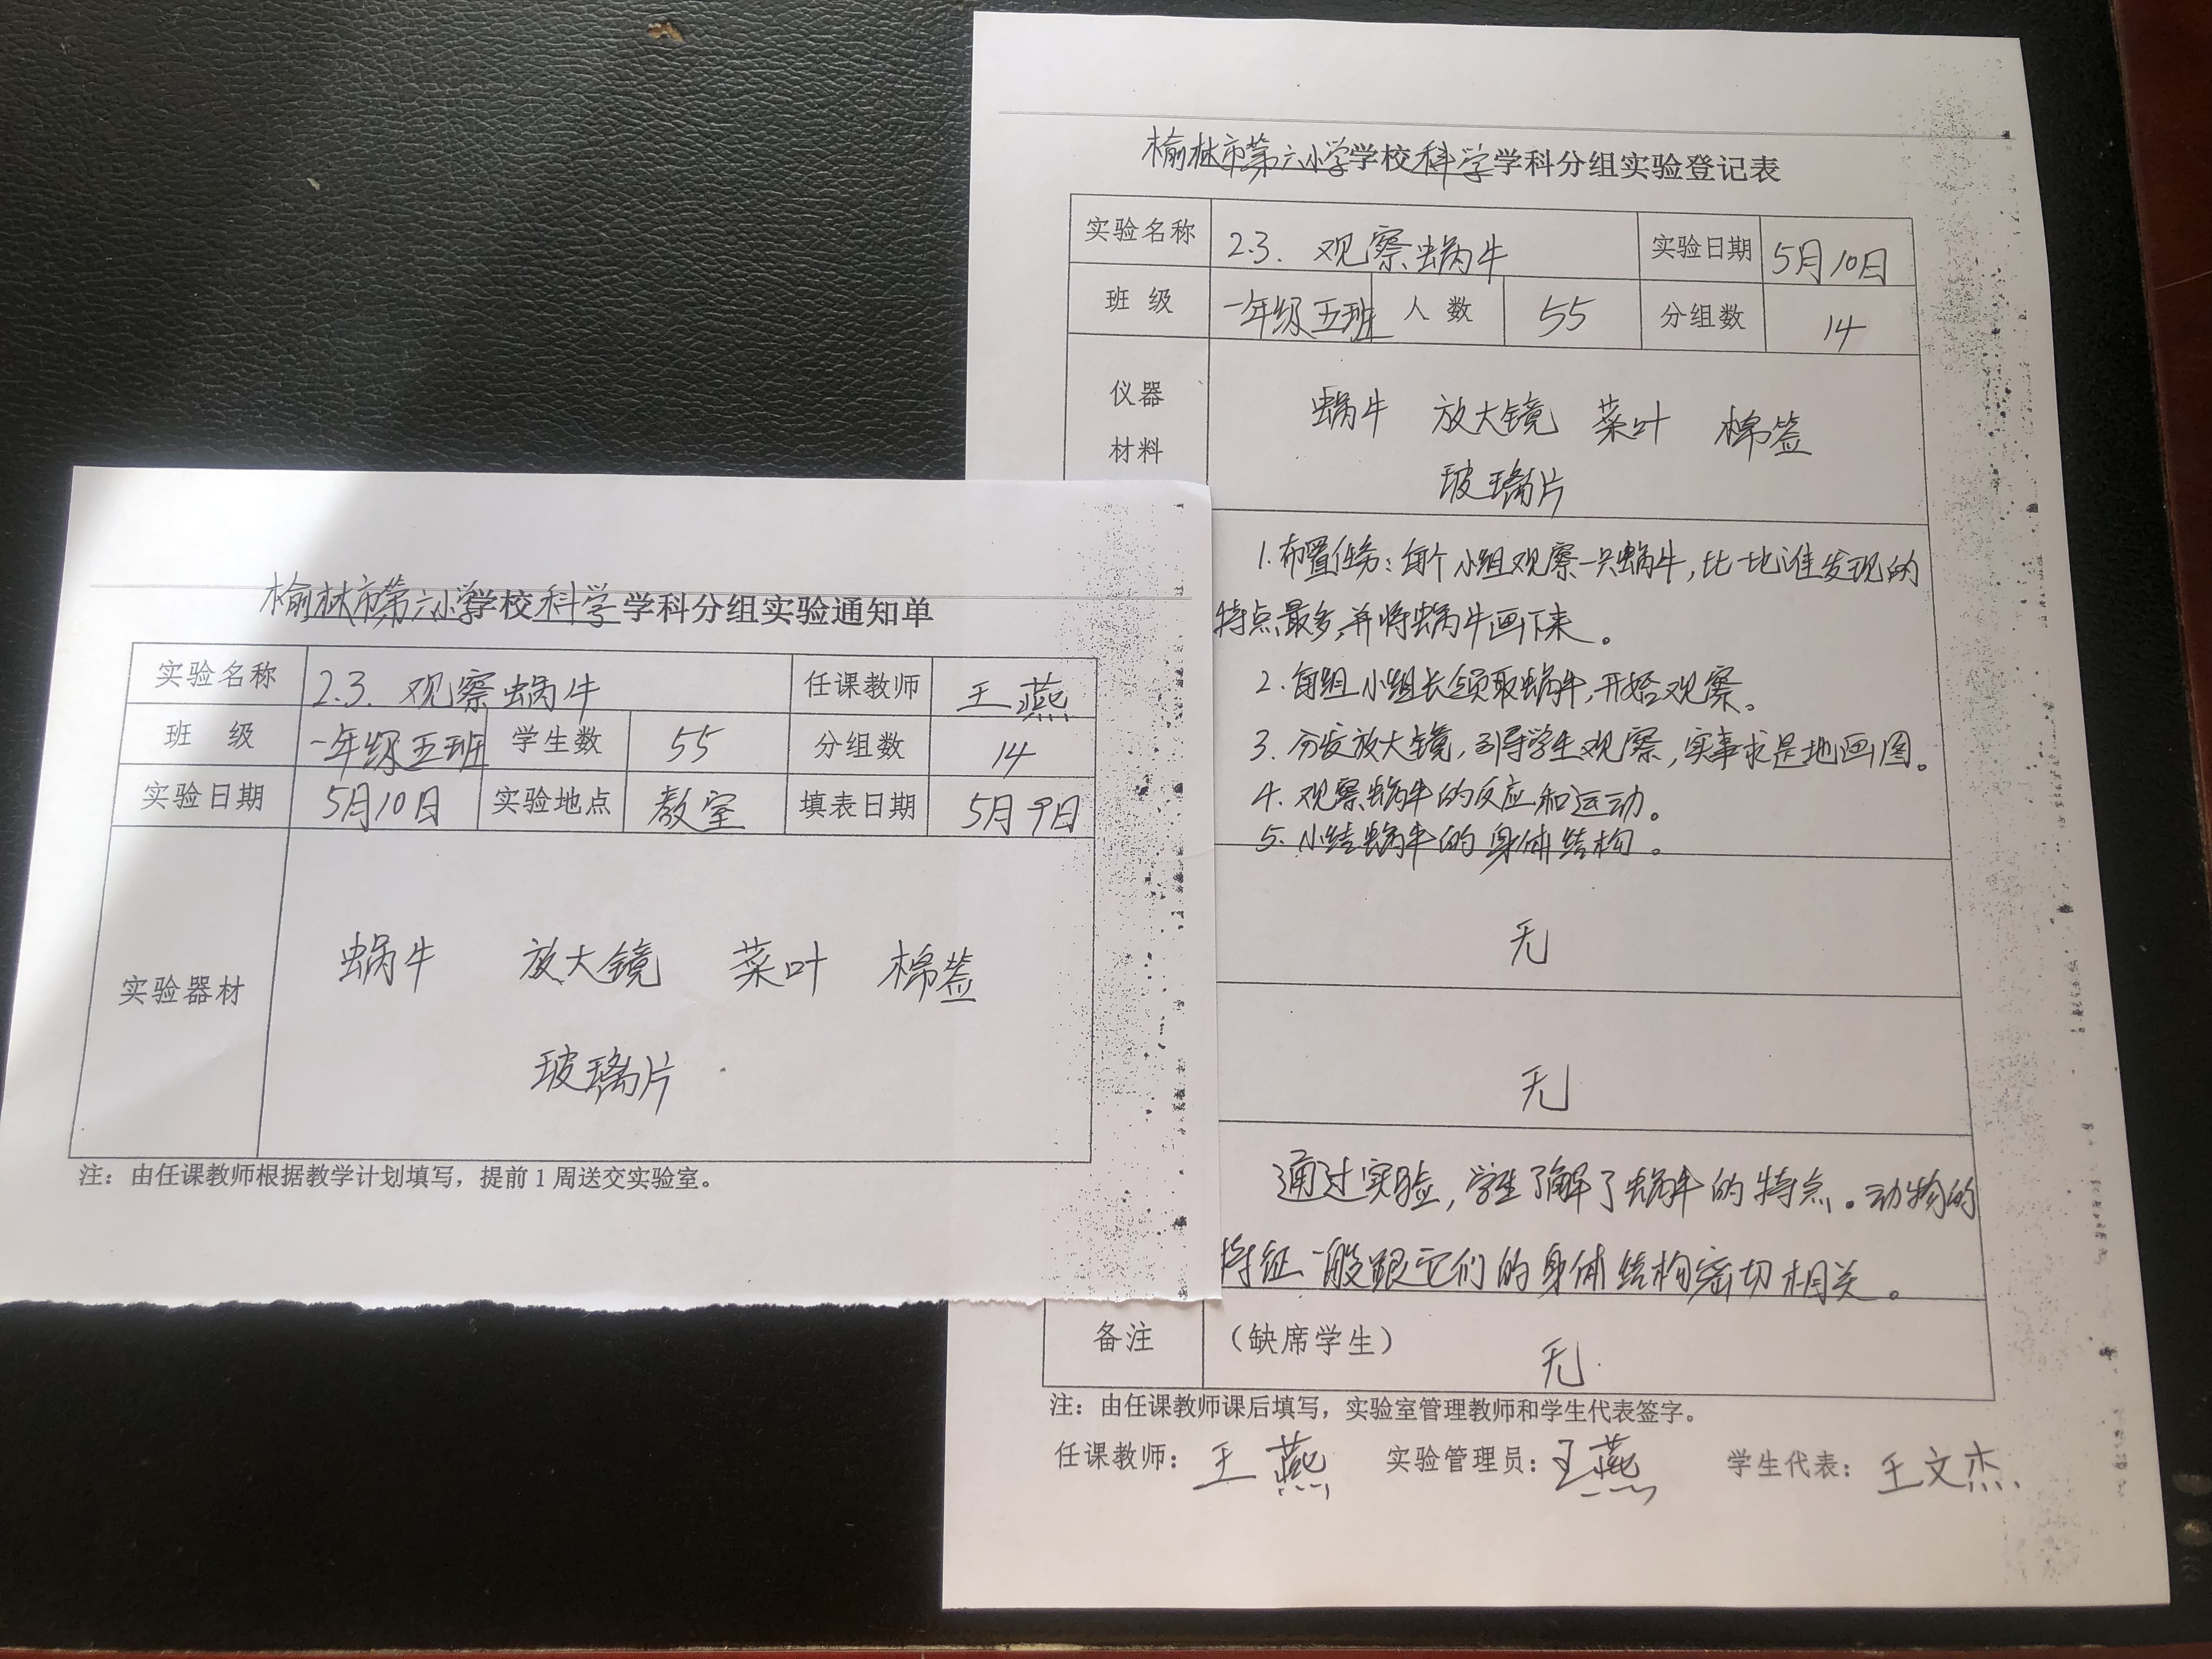 榆林市第六小学学校科学学科分组实验通知单
实验名称 2.3. 观察蜗牛 任课教师 王燕
班 级 一年级五班 学生数 55 分组数 14
实验日期 5月10日 实验地点 教室 填表日期 5月9日
实验器材
蜗牛 放大镜 菜叶 棉签
玻璃片
注：由任课教师根据教学计划填写，提前1周送交实验室。
榆林市第六小学学校科学学科分组实验登记表
实验名称 2.3. 观察蜗牛 实验日期 5月10日
班 级 一年级五班 人 数 55 分组数 14
仪器
材料
蜗牛 放大镜 菜叶 棉签
玻璃片
1.布置任务：每个小组观察一只蜗牛，比一比谁发现的
特点最多，并将蜗牛画下来。
2.每组小组长领取蜗牛，开始观察。
3.分发放大镜，引导学生观察，实事求是地画图。
4.观察蜗牛的反应和运动。
5.小结蜗牛的身体结构。
无
无
通过实验，学生了解了蜗牛的特点。动物的
特征一般跟它们的身体结构密切相关。
备注 （缺席学生） 无
注：由任课教师课后填写，实验室管理教师和学生代表签字。
任课教师：王燕 实验管理员：王燕 学生代表：王文杰